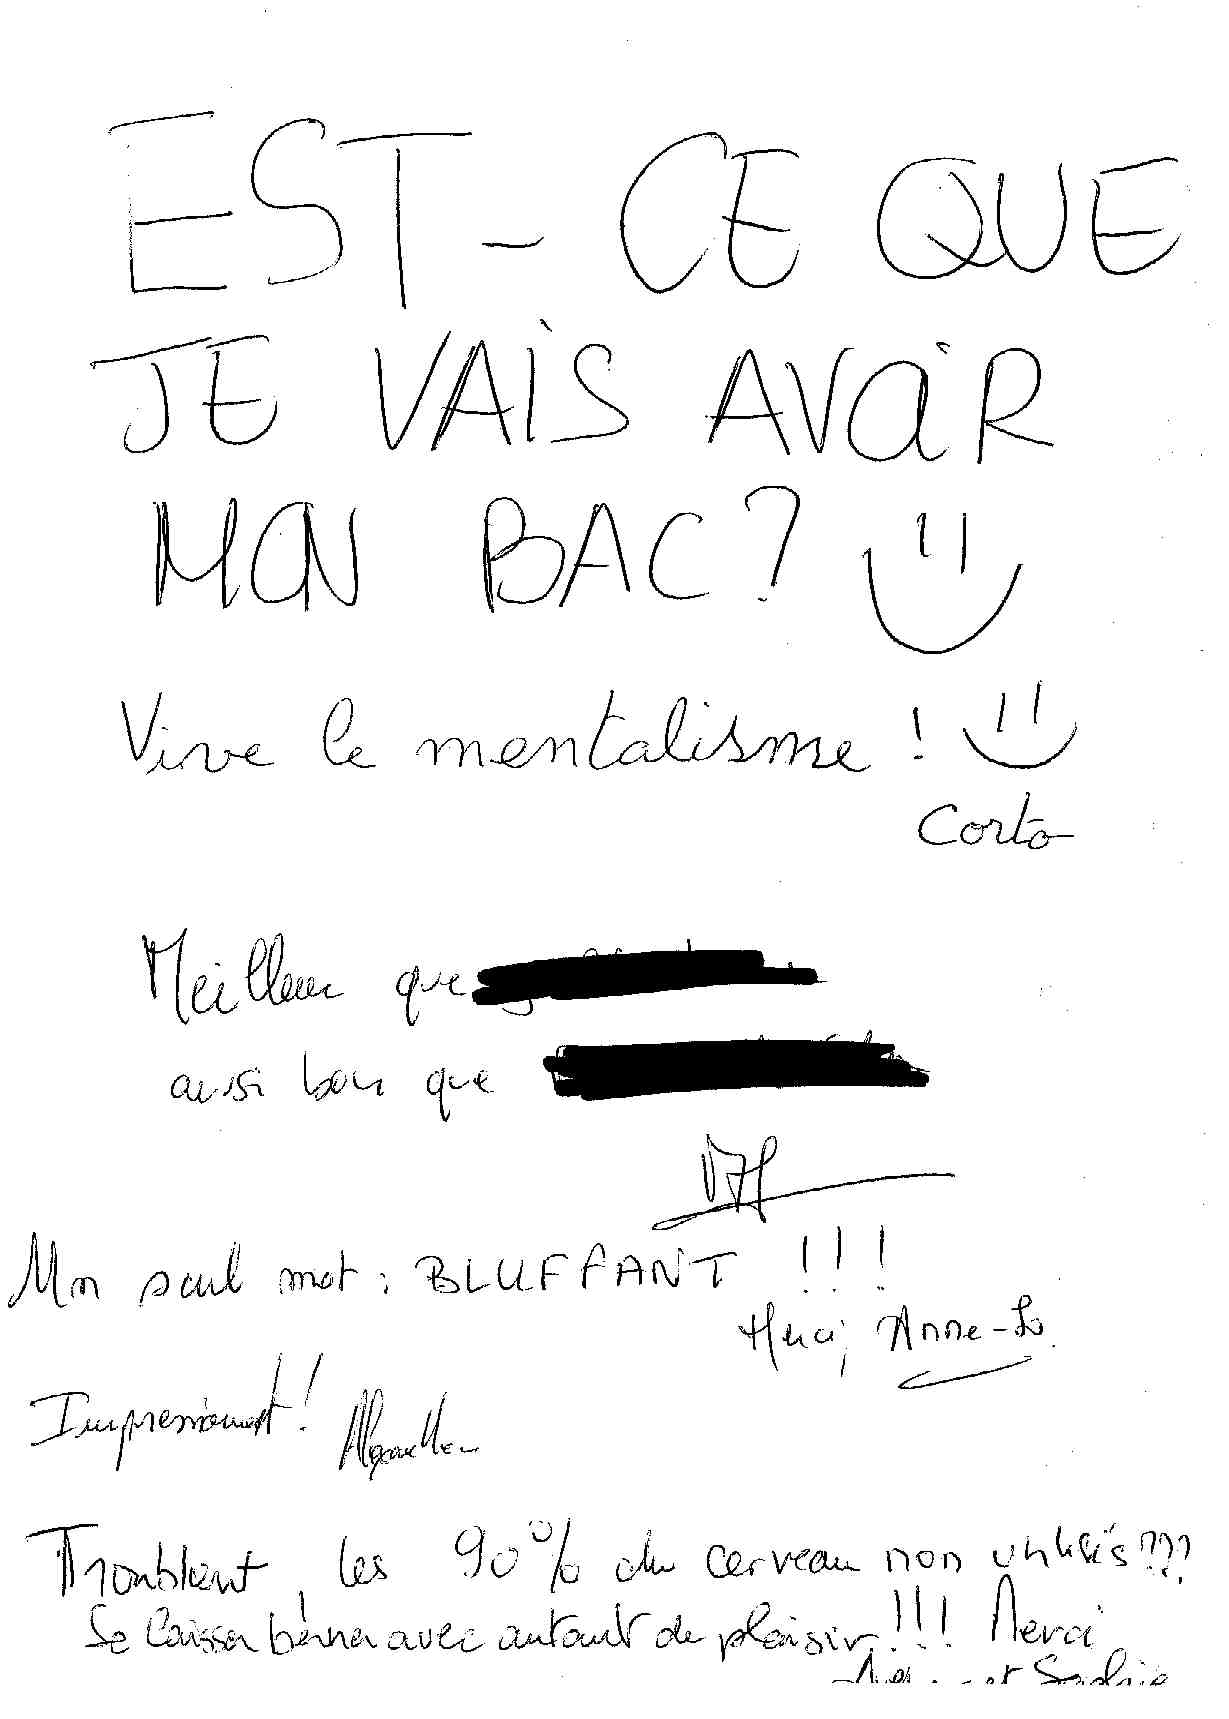 EST-CE QUE
JE VAIS AVOIR
MON BAC?
Vive le mentalisme !
Corto
Meilleur que
aussi bon que
Un seul mot : BLUFFANT !!!
Merci, Anne-So.
Impressionnant!
Troublant, les 90% du cerveau non utilisés???
Se laisser berner avec autant de plaisir!!! Merci
et Sophie